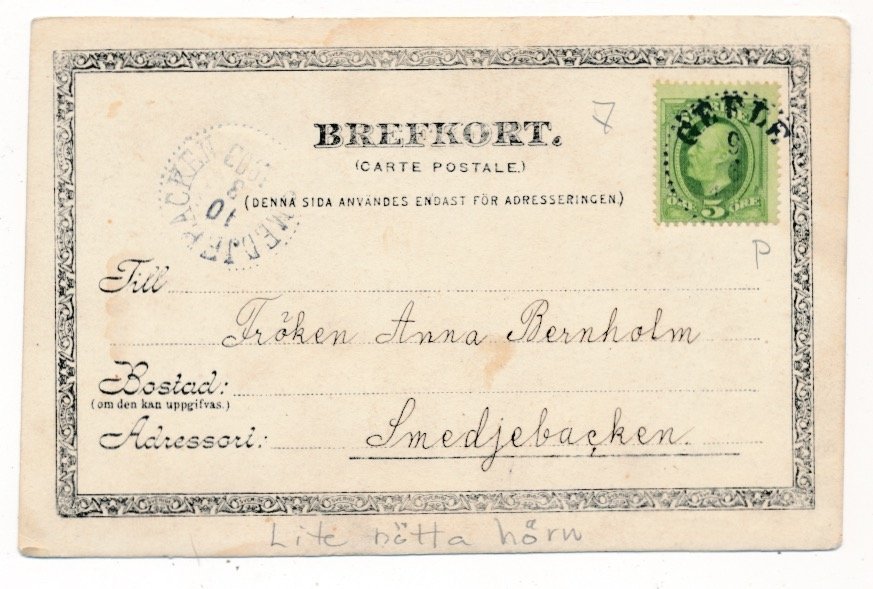 7
BREFKORT.
(CARTE POSTALE.)
(DENNA SIDA ANVÄNDES ENDAST FÖR ADRESSERINGEN.)
SMEDJEBACKEN
10
3
1903
GEFLE
9
5 ÖRE
P
Till
Fröken Anna Bernholm
Bostad:
(om den kan uppgifvas.)
Adressort:
Smedjebacken.
Lite nötta hörn